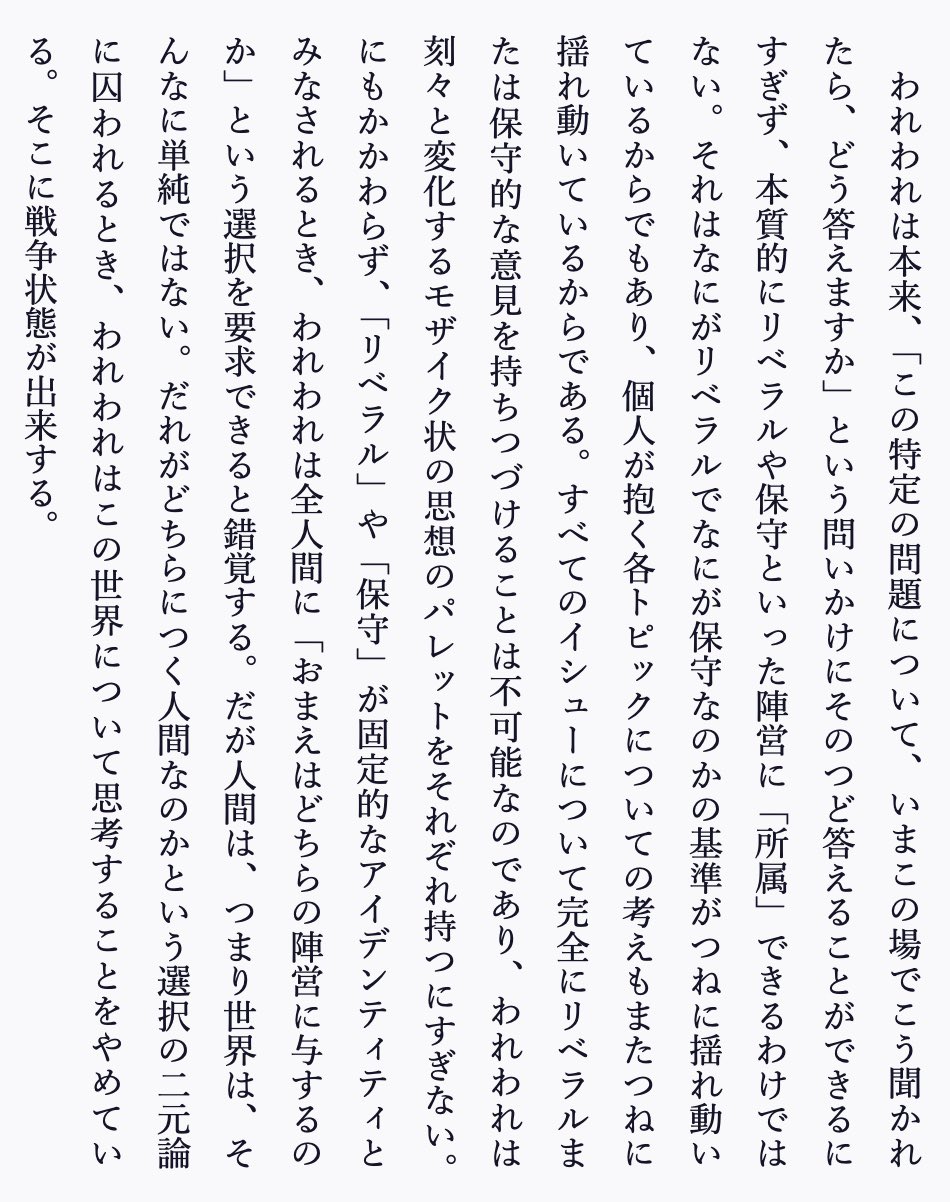 われわれは本来、「この特定の問題について、いまこの場でこう聞かれ
たら、どう答えますか」という問いかけにそのつど答えることができるに
すぎず、本質的にリベラルや保守といった陣営に「所属」できるわけでは
ない。それはなにがリベラルでなにが保守なのかの基準がつねに揺れ動い
ているからでもあり、個人が抱く各トピックについての考えもまたつねに
揺れ動いているからである。すべてのイシューについて完全にリベラルま
たは保守的な意見を持ちつづけることは不可能なのであり、われわれは
刻々と変化するモザイク状の思想のパレットをそれぞれ持つにすぎない。
にもかかわらず、「リベラル」や「保守」が固定的なアイデンティティと
みなされるとき、われわれは全人間に「おまえはどちらの陣営に与するの
か」という選択を要求できると錯覚する。だが人間は、つまり世界は、そ
んなに単純ではない。だれがどちらにつく人間なのかという選択の二元論
に囚われるとき、われわれはこの世界について思考することをやめてい
る。そこに戦争状態が出来する。